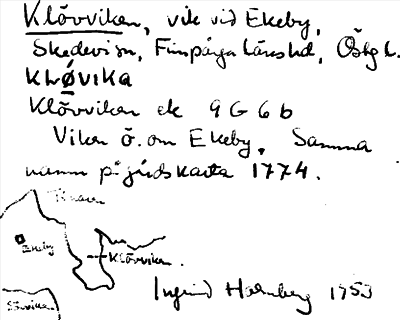 Klövviken, vik vid Ekeby,
Skedevi sn, Finspånga läns hd, Östg l.
KLØVIKA
Klövviken ek 9 G 6 b
Viken ö. om Ekeby. Samma
namn på jordskarta 1774.
Tisnaren
Ekeby
Klövviken.
Sörviken
Ingrid Holmberg 1953